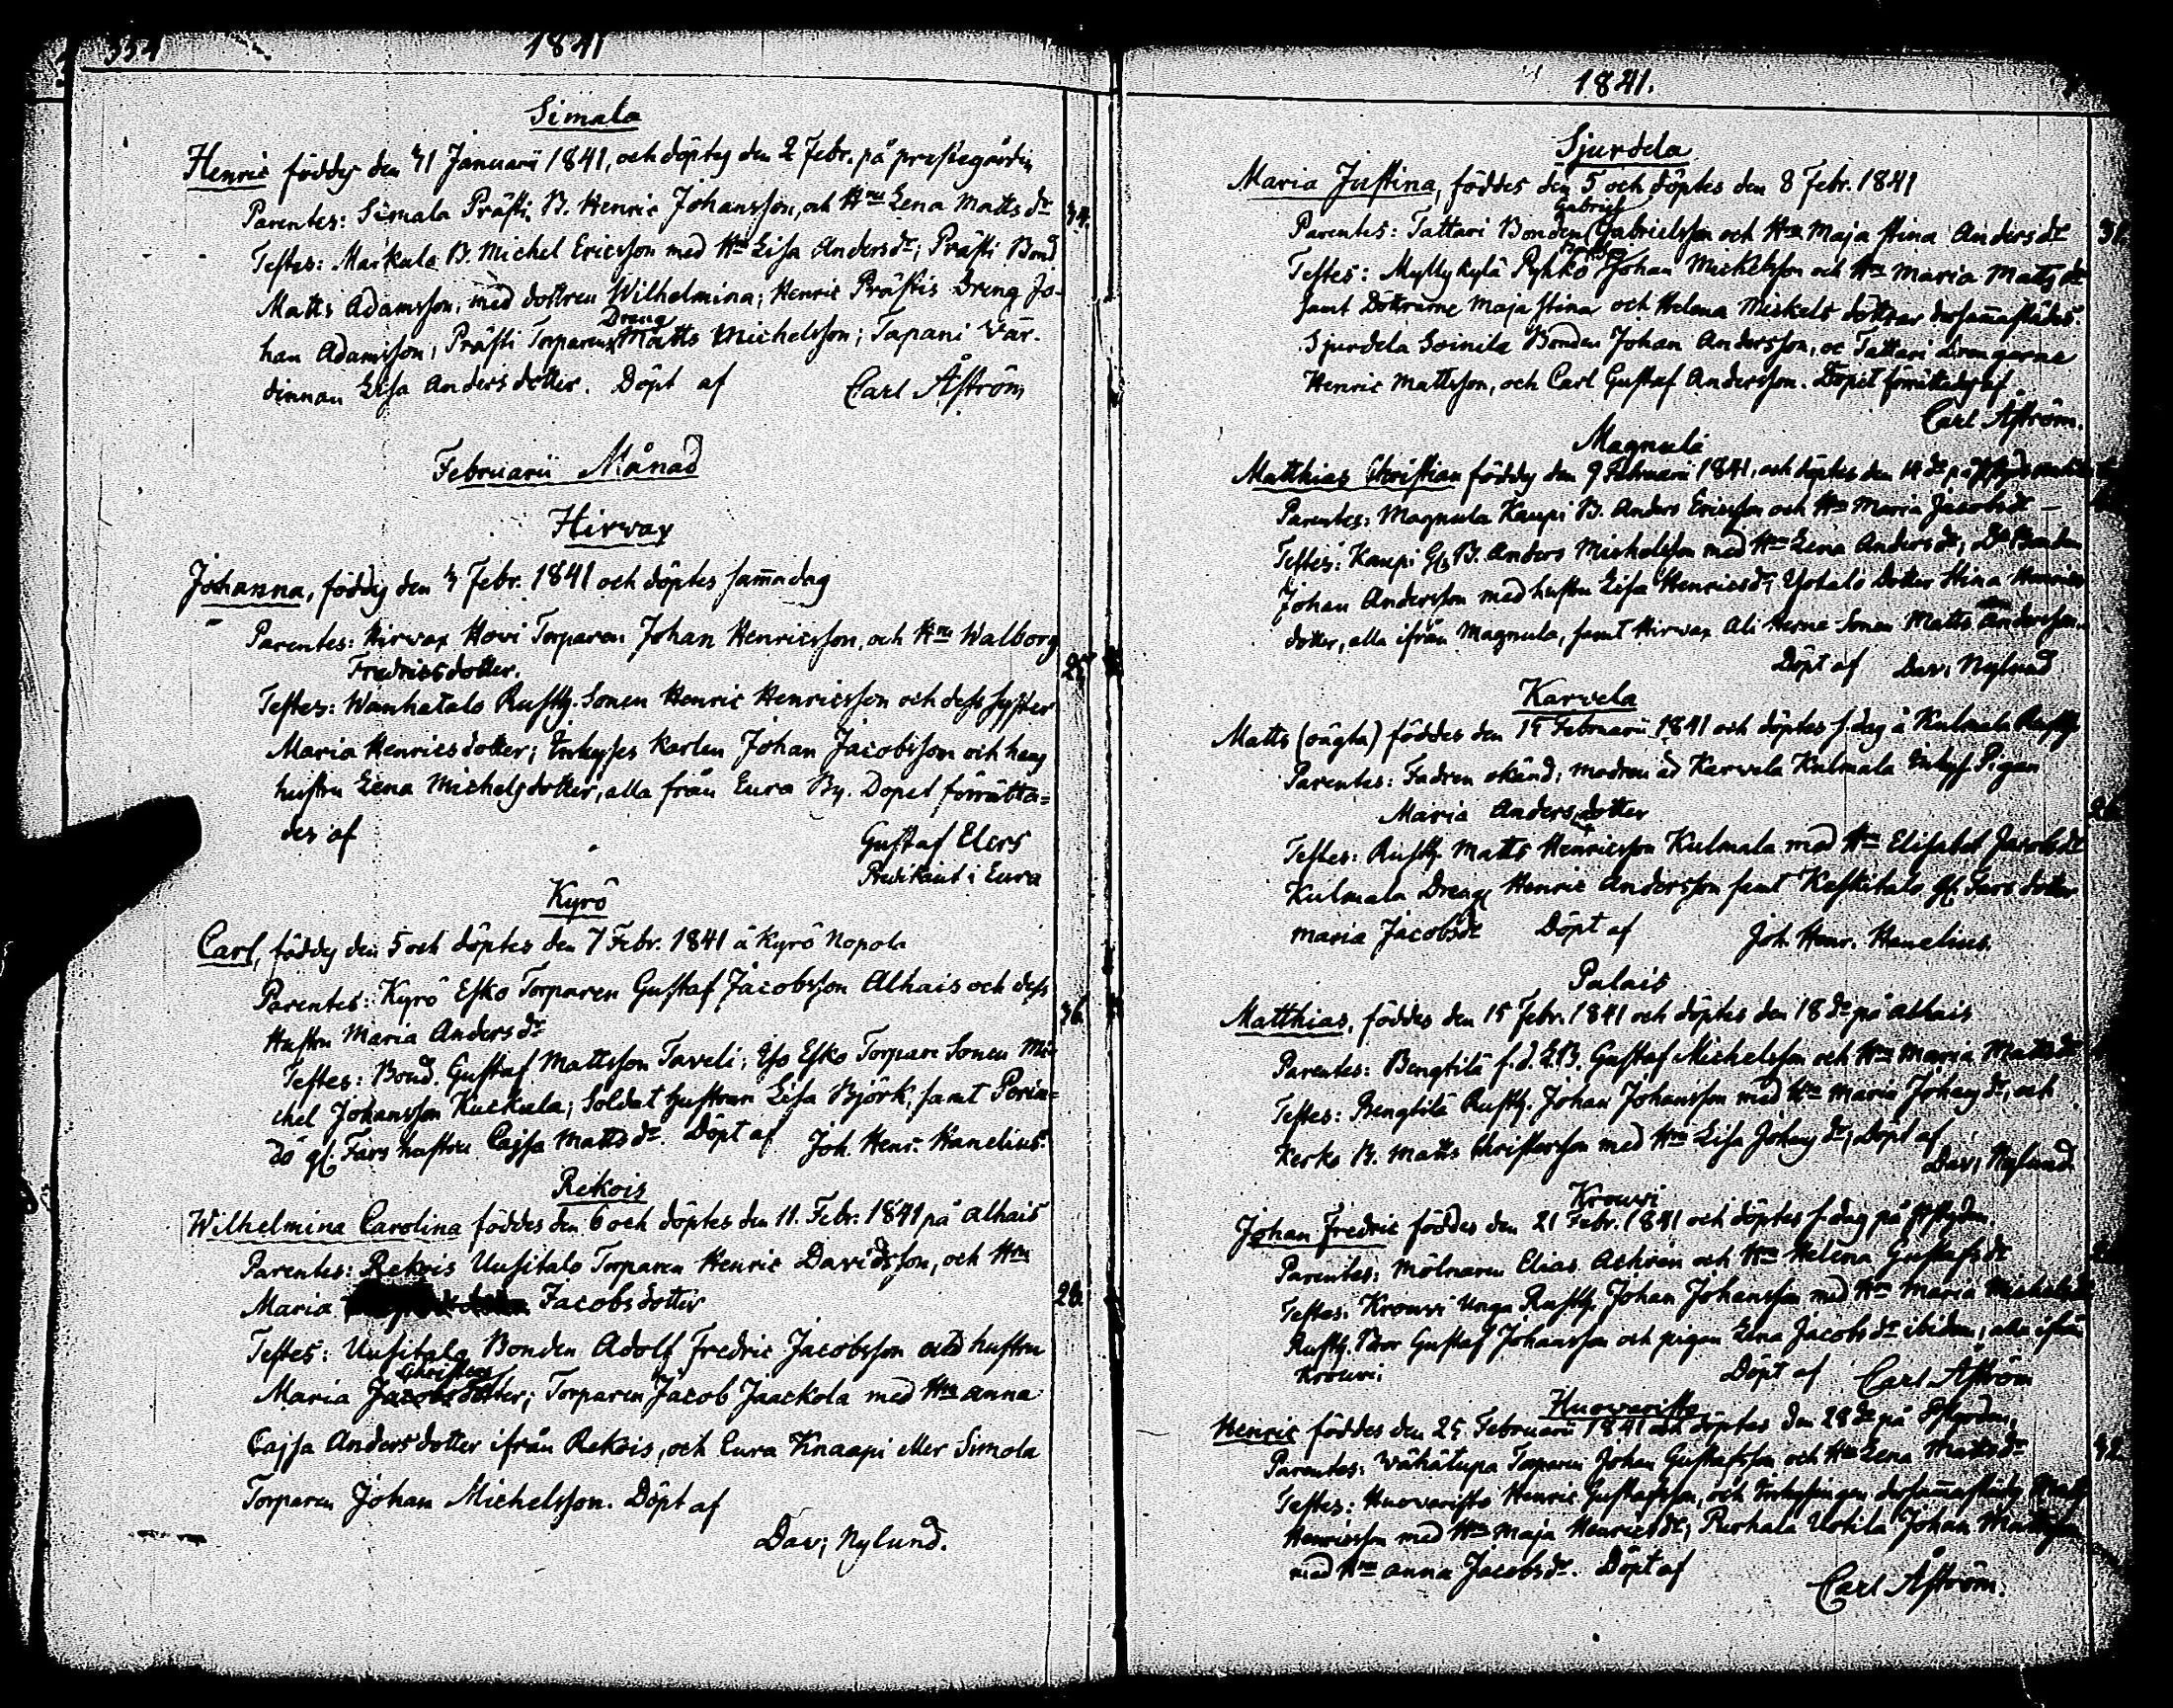 334
1841
Simala
Henric föddes den 31 Januarii 1841, och döptes den 2 Febr. på prestegården
Parentes: Simala Prästi B. Henric Johansson, och Hru Lena Matts dr
34.
Testes: Markula B. Michel Ericsson med Hru Lisa Anders dr; Prästi Bond
Matts Adamsson, med dottren Wilhelmina; Henric Prästis Dreng Jo-
han Adamsson; Prästi Torparens Dreng Matts Michelsson; Tapani Vär-
dinnan Lisa Anders dotter. Döpt af Carl Åström
Februarii Månad
Hirvax
Johanna, föddes den 3 Febr. 1841 och döptes samma dag
Parentes: Hirvax Hovi Torparen Johan Henricsson, och Hru Walborg
Fredricsdotter.
Testes: Wanhatalo Rusth. Sonen Henric Henricsson och dess syster
Maria Henricsdotter; Inhyses Karlen Johan Jacobsson och hans
hustru Lena Michelsdotter, alla från Eura By. Dopet förrätta-
des af Gustaf Elers
Predikant i Eura
Kyrö
Carl, föddes den 5 och döptes den 7 Febr. 1841 å Kyrö Nopola
Parentes: Kyrö Esko Torparen Gustaf Jacobsson Alhais och dess
36.
Hustru Maria Anders dr
Testes: Bond. Gustaf Mattsson Taveli; Yso Esko Torpare Sonen Mi-
chel Johansson Kuckula; Soldat hustrun Lisa Björk, samt Perin-
dö gl. Fars hustru Cajsa Matts dr. Döpt af Joh. Henr. Hanelius.
Rekois
Wilhelmina Carolina föddes den 6 och döptes den 11. Febr. 1841 på Alhais
Parentes: Rekois Uusitalo Torparen Henric Davidsson, och Hru
Maria Jacobsdotter
28.
Testes: Uusitalo Bonden Adolf Fredric Jacobsson och hustru
Maria Christers dotter; Torparen Jacob Jaackola med Hru Anna
Cajsa Andersdotter ifrån Rekois, och Eura Knaapi eller Simola
Torparen Johan Michelsson. Döpt af
Dav; Nylund.
1841.
Sjurdela
Maria Justina, föddes den 5 och döptes den 8 Febr. 1841
Parentes: Tattari Bonden Gabriel Gabrielsson och Hru Maja Stina Anders dr
Testes: Myllykylä Pyhkö Johan Mickelsson och Hru Maria Matts dr
samt Döttrarne Maja Stina och Helena Mickels döttrar dersammastädes.
Sjurdela Soinila Bonden Johan Andersson, oc Tattari Drengarne
Henric Mattsson, och Carl Gustaf Andersson. Dopet förrättades af
Carl Åström.
Magnula
Matthias Christian föddes den 9 Februarii 1841, och döptes den 14 de på
Parentes: Magnula Kaupi B. Anders Ericsson och Hru Maria Jacobs dr
Testes: Kaupi Gl. B. Anders Michelsson med Hru Lena Anders dr; Do Bonden
Johan Andersson med hustru Lisa Henrics dr; Ylistalo Dotter Stina Henrics
dotter, alla ifrån Magnula, samt Hirvax Ali Herna Sonen Matts Andersson.
Döpt af Dav; Nylund
Karvela
Matts (oägta) föddes den 15 Februarii 1841 och döptes s. dag å Kulmala
Parentes: Fadren okänd; modren är Karvela Kulmala Inhys. Pigan
Maria Andersdotter
Testes: Rusth. Matts Henricsson Kulmala med Hru Elisabet Jacobs dr
Kulmala Dreng Henric Andersson samt Kaskitalo gl. Fars dotter
Maria Jacobs dr Döpt af Joh. Henr. Hanelius.
Palais
Matthias, föddes den 15 Febr. 1841 och döptes den 18 de på Alhais
Parentes: Bengtilä f. d. L.B. Gustaf Michelsson och Hru Maria Matts dr
Testes: Bengtilä Rusth. Johan Johansson med Hru Maria Johans dr, och
Kerko B. Matts Christersson med Hru Lisa Johans dr; Döpt af
Dav; Nylund
Krouvi
Johan Fredric föddes den 21 Febr. 1841 och döptes s. dag på
Parentes: Mölnaren Elias Achrén och Hru Helena Gustafs dr
Testes: Krouvi Unga Rusth. Johan Johansson med Hru Maria Michels dr
Rusth. Bror Gustaf Johansson och pigan Lena Jacobs dr ibidem; alla ifrån
Krouvi; Döpt af Carl Åström
Huovaristo
Henric föddes den 25 Februarii 1841 och döptes den 28 de på
Parentes: Wähätupa Torparen Johan Gustafsson och Hru Lena Matts dr
32
Testes: Huovaristo Henric Gustafsson, och Inhysingen dersammastädes Matts
Henricsson med Hru Maja Henrics dr; Purhala Uotila Johan Mattsson
med Hru Anna Jacobs dr. Döpt af
Carl Åström.